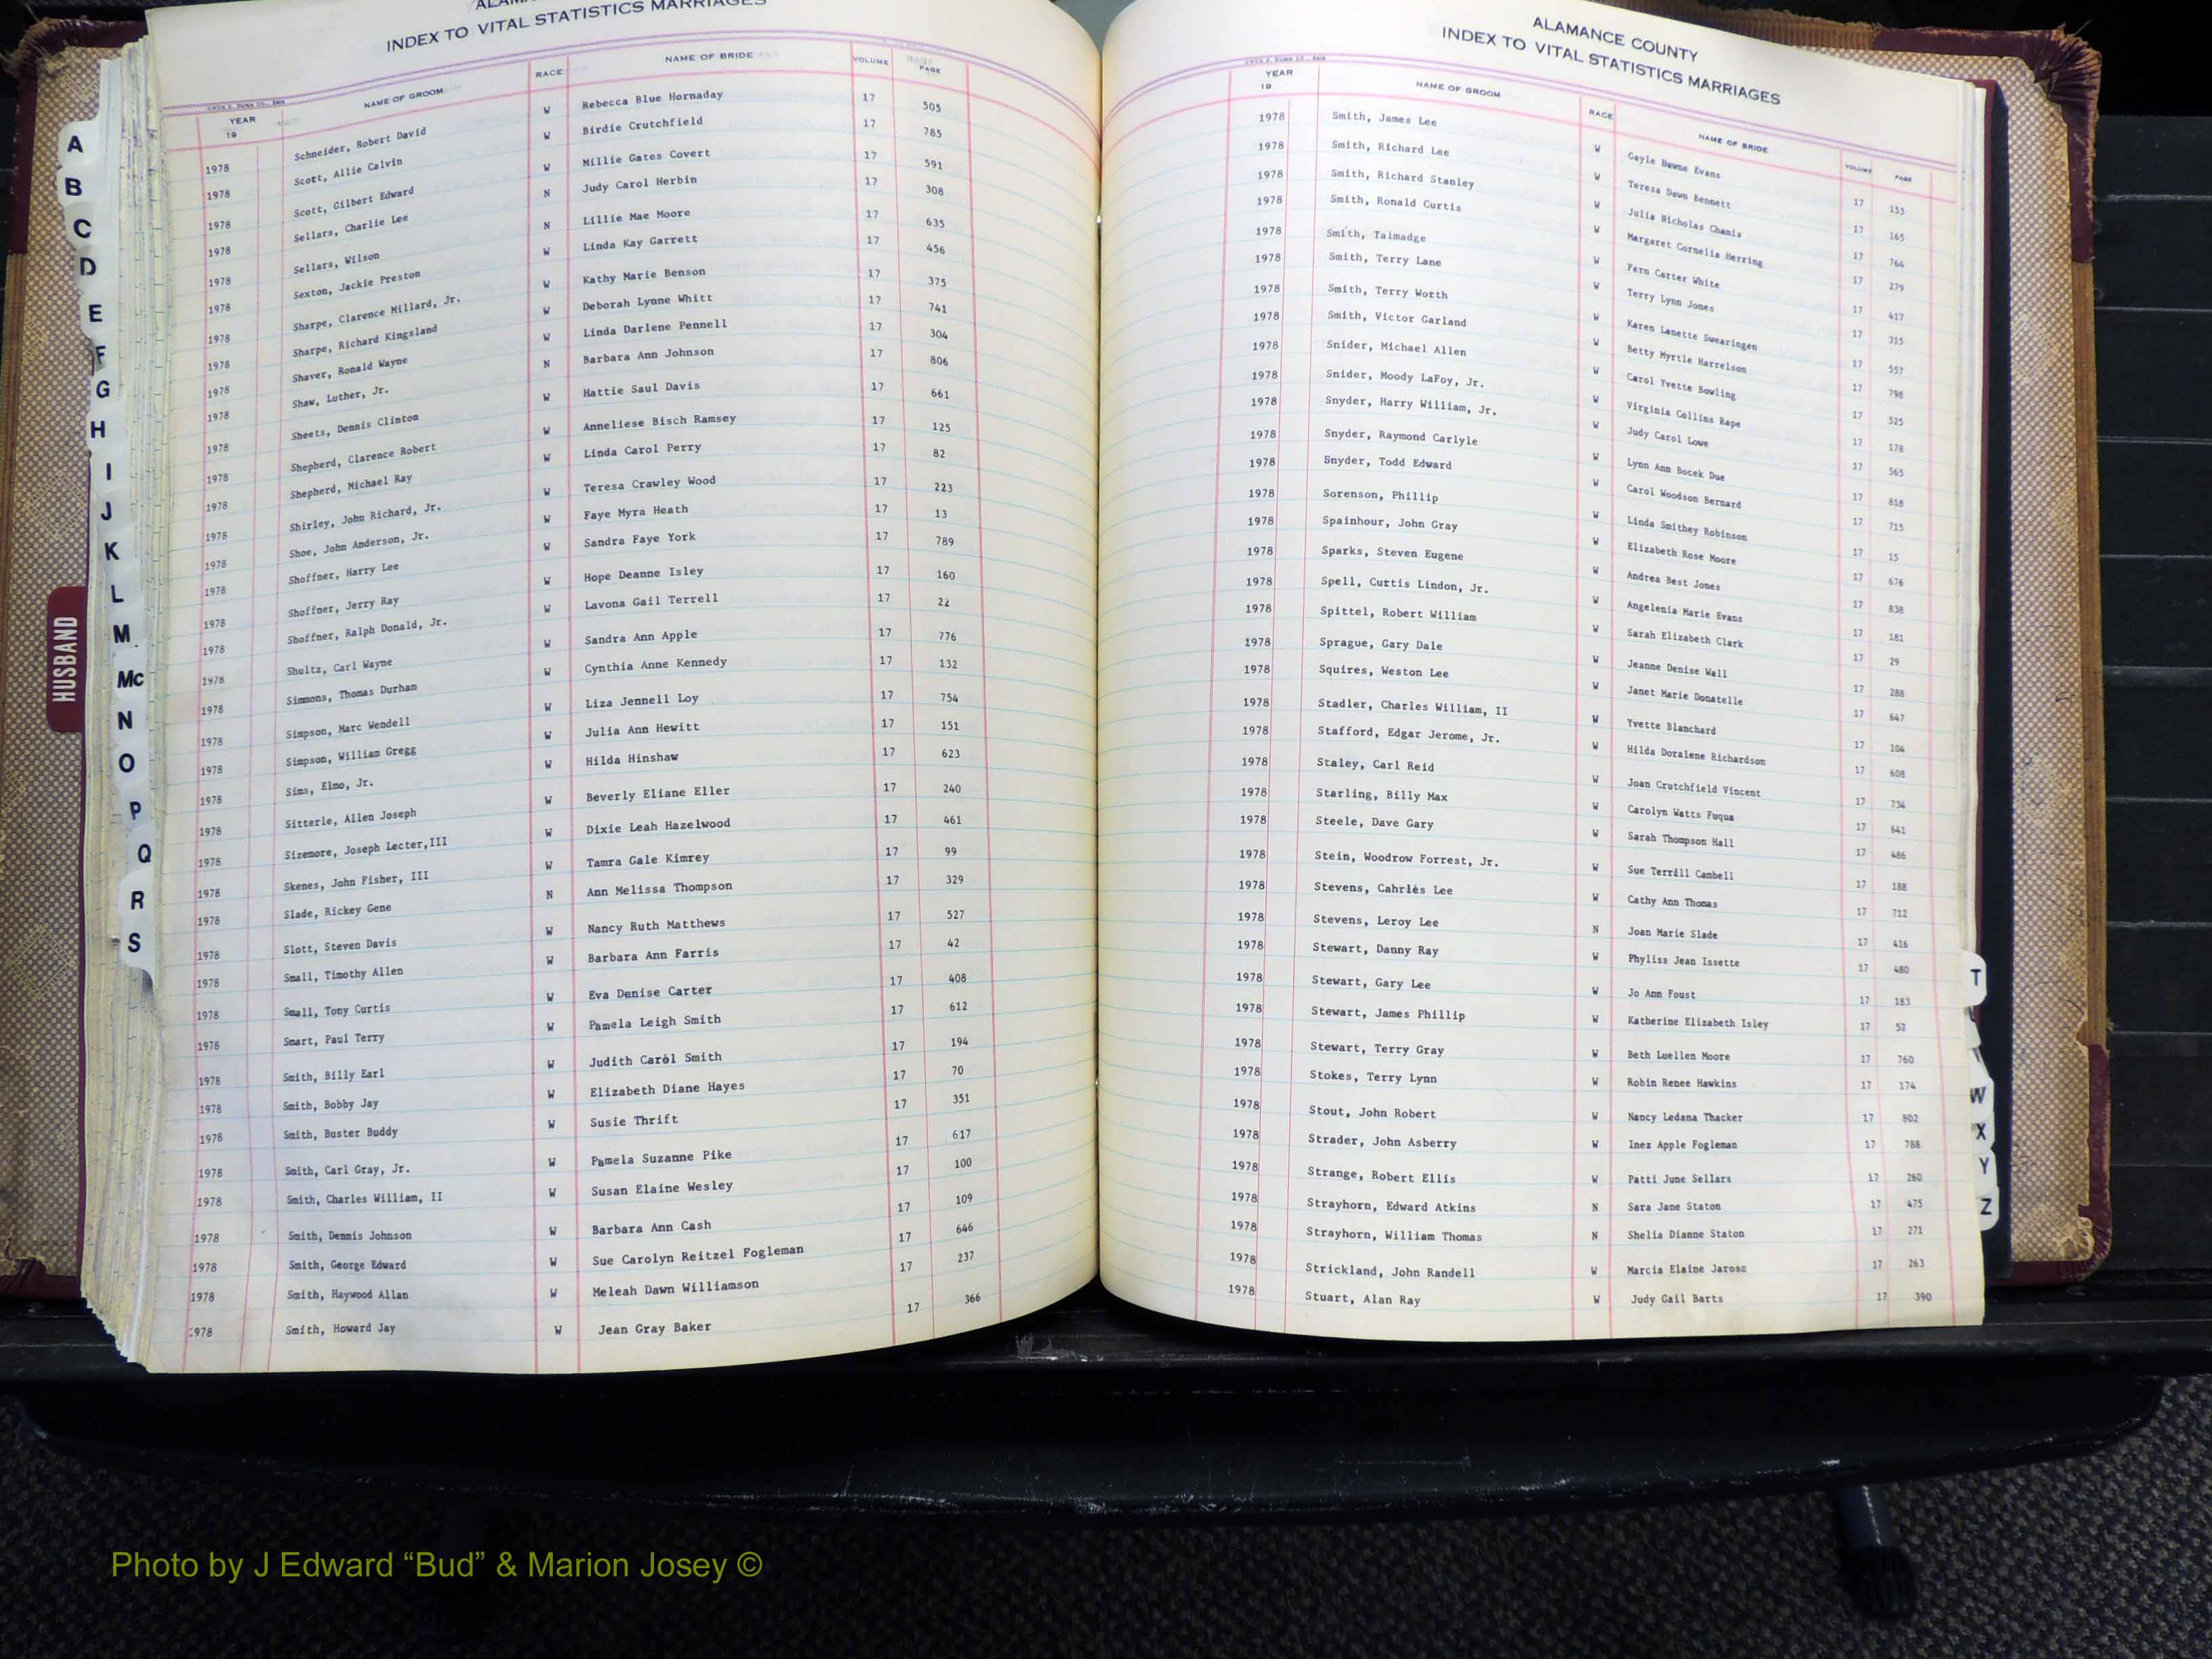 ALAM
INDEX TO VITAL STATISTICS MARRIAGES
OWEN G. DUNN CO.
YEAR 19 NAME OF GROOM RACE NAME OF BRIDE VOLUME PAGE
1978 Schneider, Robert David W Rebecca Blue Hornaday 17 505
1978 Scott, Allie Calvin W Birdie Crutchfield 17 785
1978 Scott, Gilbert Edward W Millie Gates Covert 17 591
1978 Sellars, Charlie Lee N Judy Carol Herbin 17 308
1978 Sellars, Wilson N Lillie Mae Moore 17 635
1978 Sexton, Jackie Preston W Linda Kay Garrett 17 456
1978 Sharpe, Clarence Millard, Jr. W Kathy Marie Benson 17 375
1978 Sharpe, Richard Kingsland W Deborah Lynne Whitt 17 741
1978 Shaver, Ronald Wayne W Linda Darlene Pennell 17 304
1978 Shaw, Luther, Jr. N Barbara Ann Johnson 17 806
1978 Sheets, Dennis Clinton W Hattie Saul Davis 17 661
1978 Shepherd, Clarence Robert W Anneliese Bisch Ramsey 17 125
1978 Shepherd, Michael Ray W Linda Carol Perry 17 82
1978 Shirley, John Richard, Jr. W Teresa Crawley Wood 17 223
1978 Shoe, John Anderson, Jr. W Faye Myra Heath 17 13
1978 Shoffner, Harry Lee W Sandra Faye York 17 789
1978 Shoffner, Jerry Ray W Hope Deanne Isley 17 160
1978 Shoffner, Ralph Donald, Jr. W Lavona Gail Terrell 17 22
1978 Shultz, Carl Wayne W Sandra Ann Apple 17 776
1978 Simmons, Thomas Durham W Cynthia Anne Kennedy 17 132
1978 Simpson, Marc Wendell W Liza Jennell Loy 17 754
1978 Simpson, William Gregg W Julia Ann Hewitt 17 151
1978 Sims, Elmo, Jr. W Hilda Hinshaw 17 623
1978 Sitterle, Allen Joseph W Beverly Eliane Eller 17 240
1978 Sizemore, Joseph Lecter,III W Dixie Leah Hazelwood 17 461
1978 Skenes, John Fisher, III W Tamra Gale Kimrey 17 99
1978 Slade, Rickey Gene N Ann Melissa Thompson 17 329
1978 Slott, Steven Davis W Nancy Ruth Matthews 17 527
1978 Small, Timothy Allen W Barbara Ann Farris 17 42
1978 Small, Tony Curtis W Eva Denise Carter 17 408
1978 Smart, Paul Terry W Pamela Leigh Smith 17 612
1978 Smith, Billy Earl W Judith Carol Smith 17 194
1978 Smith, Bobby Jay W Elizabeth Diane Hayes 17 70
1978 Smith, Buster Buddy W Susie Thrift 17 351
1978 Smith, Carl Gray, Jr. W Pamela Suzanne Pike 17 617
1978 Smith, Charles William, II W Susan Elaine Wesley 17 100
1978 Smith, Dennis Johnson W Barbara Ann Cash 17 109
1978 Smith, George Edward W Sue Carolyn Reitzel Fogleman 17 646
1978 Smith, Haywood Allan W Meleah Dawn Williamson 17 237
1978 Smith, Howard Jay W Jean Gray Baker 17 366
ALAMANCE COUNTY
INDEX TO VITAL STATISTICS MARRIAGES
OWEN G. DUNN CO.
YEAR 19 NAME OF GROOM RACE NAME OF BRIDE VOLUME PAGE
1978 Smith, James Lee W Gayle Dawne Evans 17 153
1978 Smith, Richard Lee W Teresa Dawn Bennett 17 165
1978 Smith, Richard Stanley W Julia Nicholas Chamis 17 764
1978 Smith, Ronald Curtis W Margaret Cornelia Herring 17 279
1978 Smith, Talmadge W Fern Carter White 17 417
1978 Smith, Terry Lane W Terry Lynn Jones 17 315
1978 Smith, Terry Worth W Karen Lanette Swearingen 17 557
1978 Smith, Victor Garland W Betty Myrtle Harrelson 17 798
1978 Snider, Michael Allen W Carol Yvette Bowling 17 525
1978 Snider, Moody LaFoy, Jr. W Virginia Collins Rape 17 178
1978 Snyder, Harry William, Jr. W Judy Carol Lowe 17 565
1978 Snyder, Raymond Carlyle W Lynn Ann Bocek Due 17 818
1978 Snyder, Todd Edward W Carol Woodson Bernard 17 715
1978 Sorenson, Phillip W Linda Smithey Robinson 17 15
1978 Spainhour, John Gray W Elizabeth Rose Moore 17 676
1978 Sparks, Steven Eugene W Andrea Best Jones 17 838
1978 Spell, Curtis Lindon, Jr. W Angelenia Marie Evans 17 181
1978 Spittel, Robert William W Sarah Elizabeth Clark 17 29
1978 Sprague, Gary Dale W Jeanne Denise Wall 17 288
1978 Squires, Weston Lee W Janet Marie Donatelle 17 647
1978 Stadler, Charles William, II W Yvette Blanchard 17 104
1978 Stafford, Edgar Jerome, Jr. W Hilda Doralene Richardson 17 608
1978 Staley, Carl Reid W Joan Crutchfield Vincent 17 734
1978 Starling, Billy Max W Carolyn Watts Fuqua 17 641
1978 Steele, Dave Gary W Sarah Thompson Hall 17 486
1978 Stein, Woodrow Forrest, Jr. W Sue Terrill Cambell 17 188
1978 Stevens, Cahrles Lee W Cathy Ann Thomas 17 712
1978 Stevens, Leroy Lee N Joan Marie Slade 17 416
1978 Stewart, Danny Ray W Phyliss Jean Issette 17 480
1978 Stewart, Gary Lee W Jo Ann Foust 17 183
1978 Stewart, James Phillip W Katherine Elizabeth Isley 17
1978 Stewart, Terry Gray W Beth Luellen Moore 17 760
1978 Stokes, Terry Lynn W Robin Renee Hawkins 17 174
1978 Stout, John Robert W Nancy Ledana Thacker 17 802
1978 Strader, John Asberry W Inez Apple Fogleman 17 788
1978 Strange, Robert Ellis W Patti June Sellars 17 260
1978 Strayhorn, Edward Atkins N Sara Jane Staton 17 475
1978 Strayhorn, William Thomas N Shelia Dianne Staton 17 271
1978 Strickland, John Randell W Marcia Elaine Jarosz 17 263
1978 Stuart, Alan Ray W Judy Gail Barts 17 390
HUSBAND
A
B
C
D
E
F
G
H
I
J
K
L
M
Mc
N
O
P
Q
R
S
T
W
X
Y
Z
Photo by J Edward “Bud” & Marion Josey ©